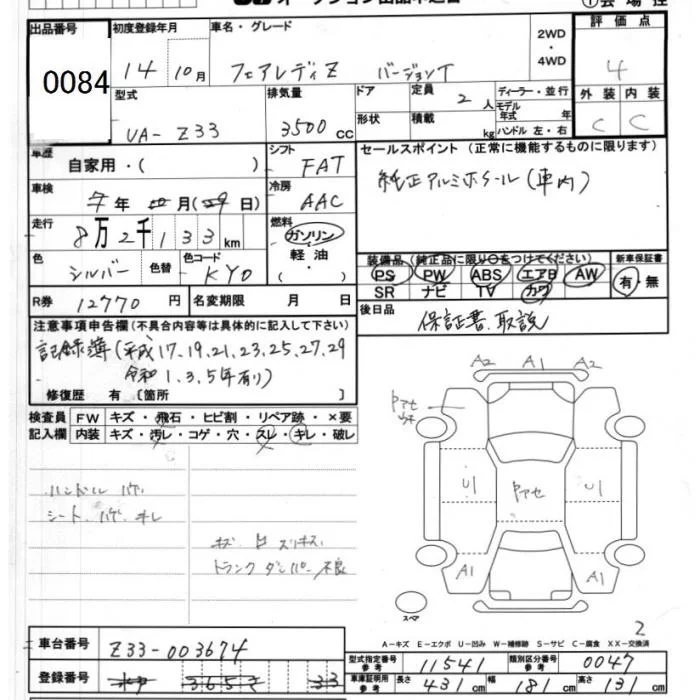 出品番号
0084
初度登録年月
14年10月
車名・グレード
フェアレディZ バージョンT
2WD
・
4WD
評価点
4
型式
UA-Z33
排気量
3500cc
ドア
形状
定員 2人
積載 kg
ディーラー・並行
モデル年式 年
ハンドル 左・右
外装 内装
C C
車歴
自家用・( )
シフト
FAT
セールスポイント (正常に機能するものに限ります)
純正アルミホイール(車内)
車検
年 月( 日)
冷房
AAC
走行
8万2千133km
燃料
ガソリン
軽油
( ・ )
色
シルバー
色替
色コード
KY0
装備品 (純正品に限り○をつけてください)
PS PW ABS エアB AW
SR ナビ TV カワ
新車保証書
有・無
R券 12770円
名変期限 月 日
後日品
保証書、取説
注意事項申告欄 (不具合内容等は具体的に記入して下さい)
記録簿(平成17、19、21、23、25、27、29
令和1、3、5年有り)
修復歴 有 〔箇所 〕
検査員 FW キズ・飛石・ヒビ割・リペア跡・×要
記入欄 内装 キズ・汚レ・コゲ・穴・スレ・キレ・破レ
ハンドル ハゲ
シート、ハゲ、キレ
キズ スリキズ
トランク ダンパー不良
A2 A1 A2
Pアセ
U1 Pアセ U1
A1 A1
スペア
2
A-キズ E-エクボ U-凹み W-補修跡 S-サビ C-腐食 XX-交換済
車台番号 Z33-003674
登録番号
型式指定番号 参考 11541
類別区分番号 参考 0047
車庫証明用 参考 長さ 431cm 幅 181cm 高さ 131cm